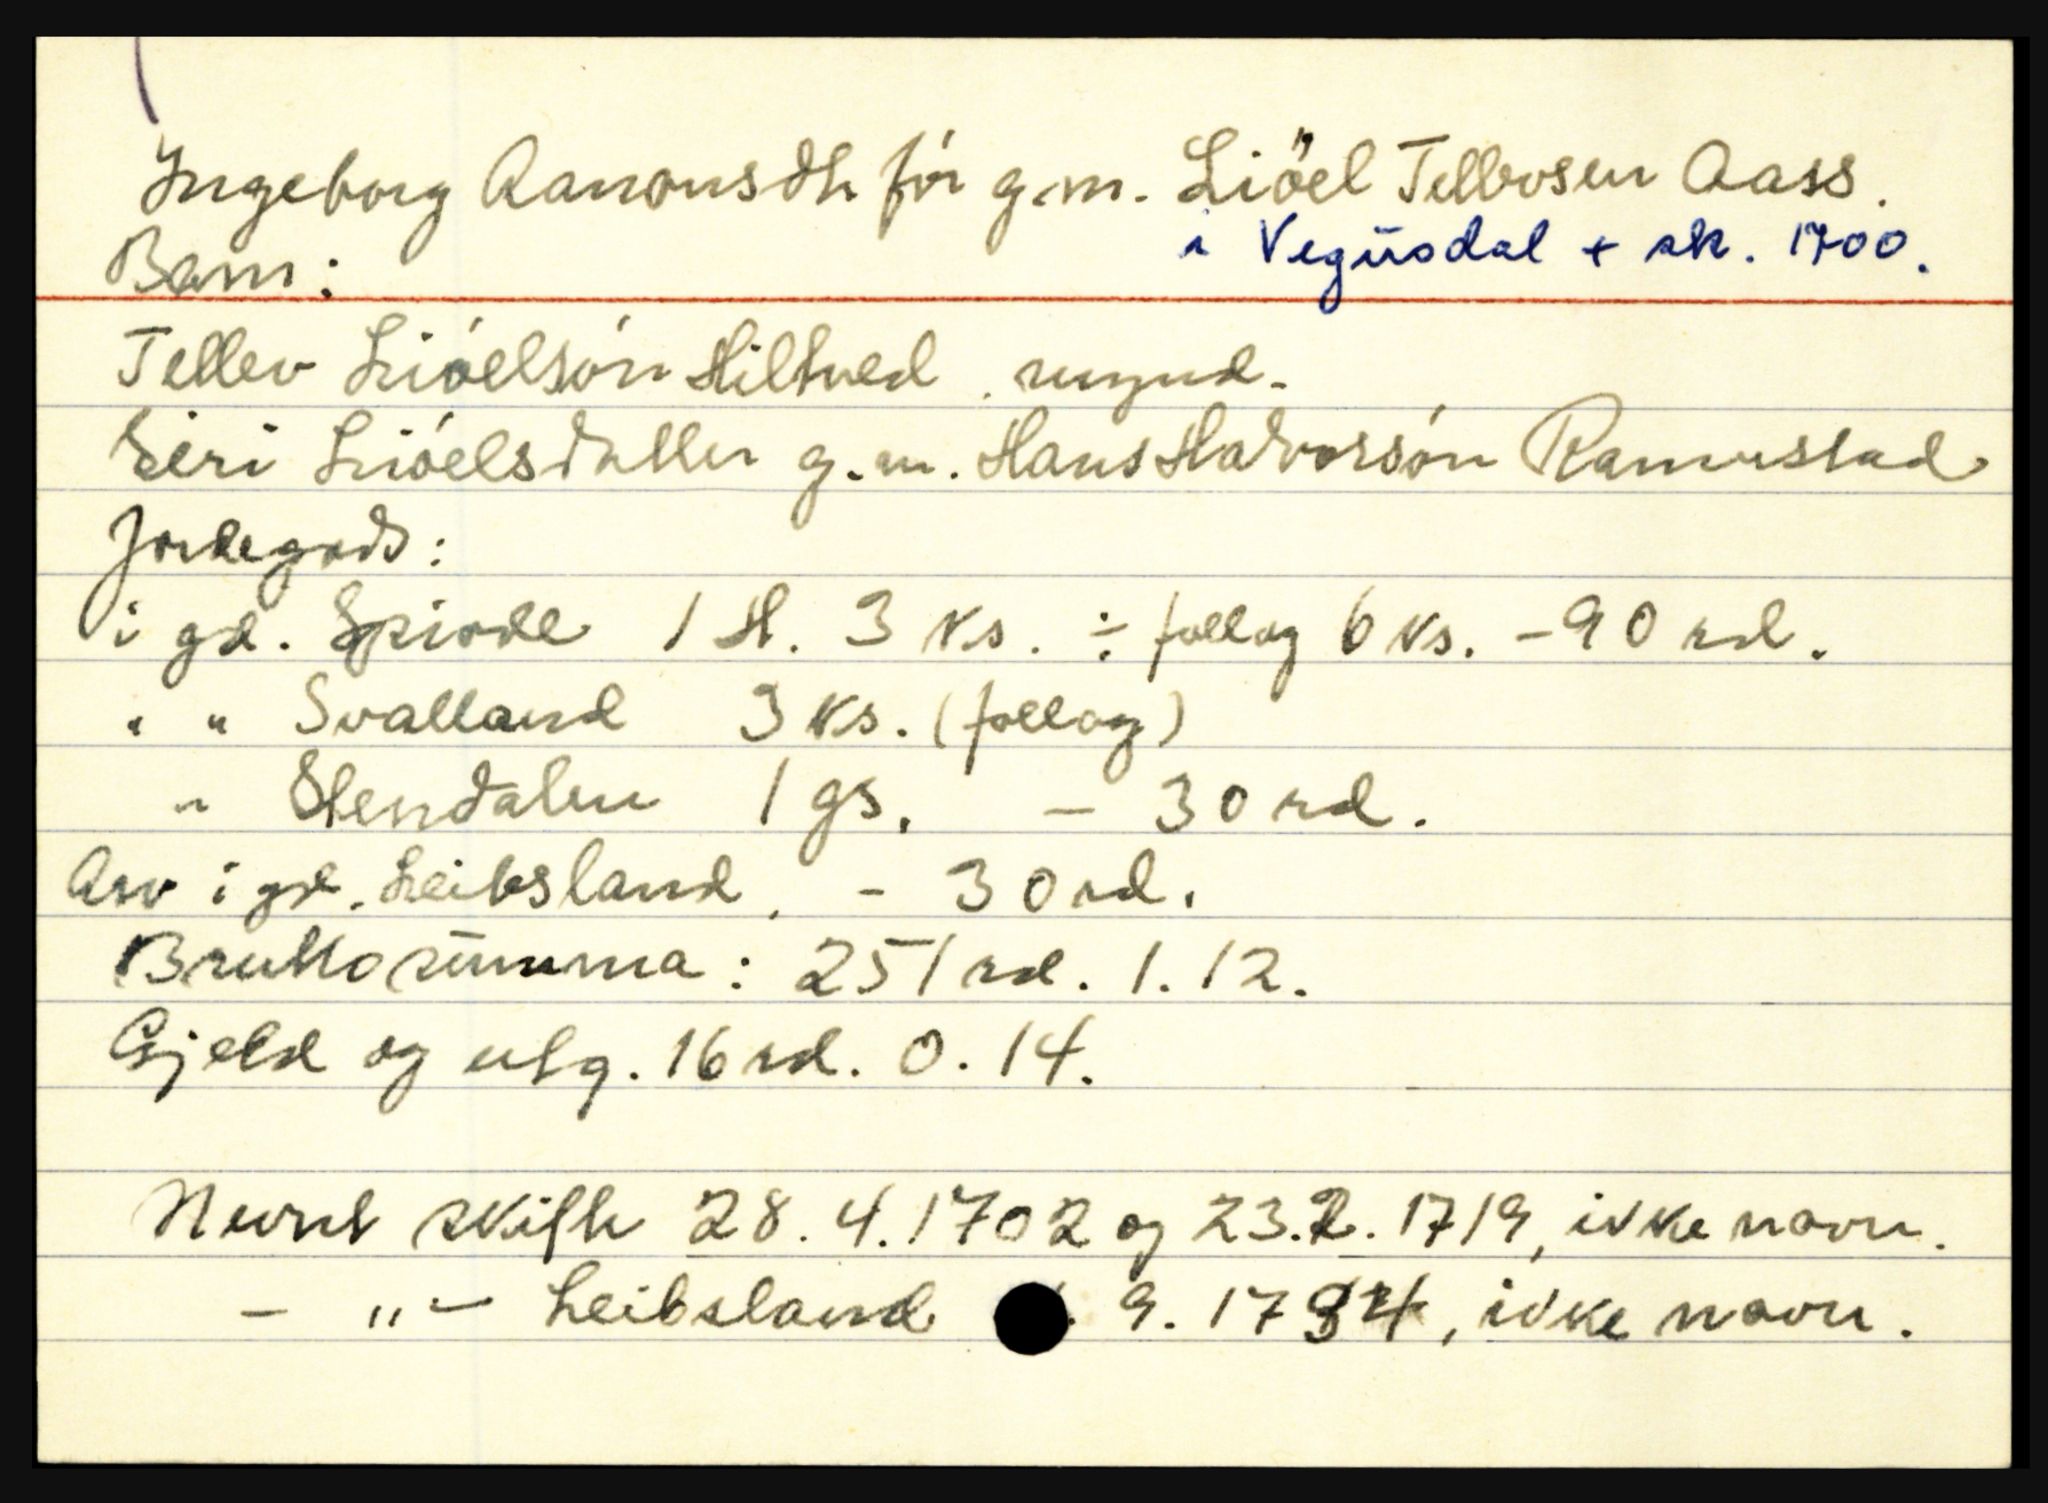 Ingeborg Aanonsdtr för g.m. Liöel Tellevsen Aass.
i Vegusdal + sk. 1700.
Barn:
Tellev Lióelsón Hiltved. mynd.
Siri Lióelsdatter g.m. Hans Halvorsón Ramustad
Jordegods:
i gd. Spirdl 1 H. 3 ks. ÷ follag 6 ks. - 90 rd.
" " Svalland 3 ks. (follag)
" Stendalen 1 gs. - 30 rd.
Arv i gd. Leibsland. - 30 rd.
Brutto summa: 251 rd. 1. 12.
Gjeld og utg. 16 rd. 0. 14.
Nevnt skifte 28. 4. 1702 og 23.2. 1719, ikke navn.
- " - Leibsland 9. 1734, ikke navn.